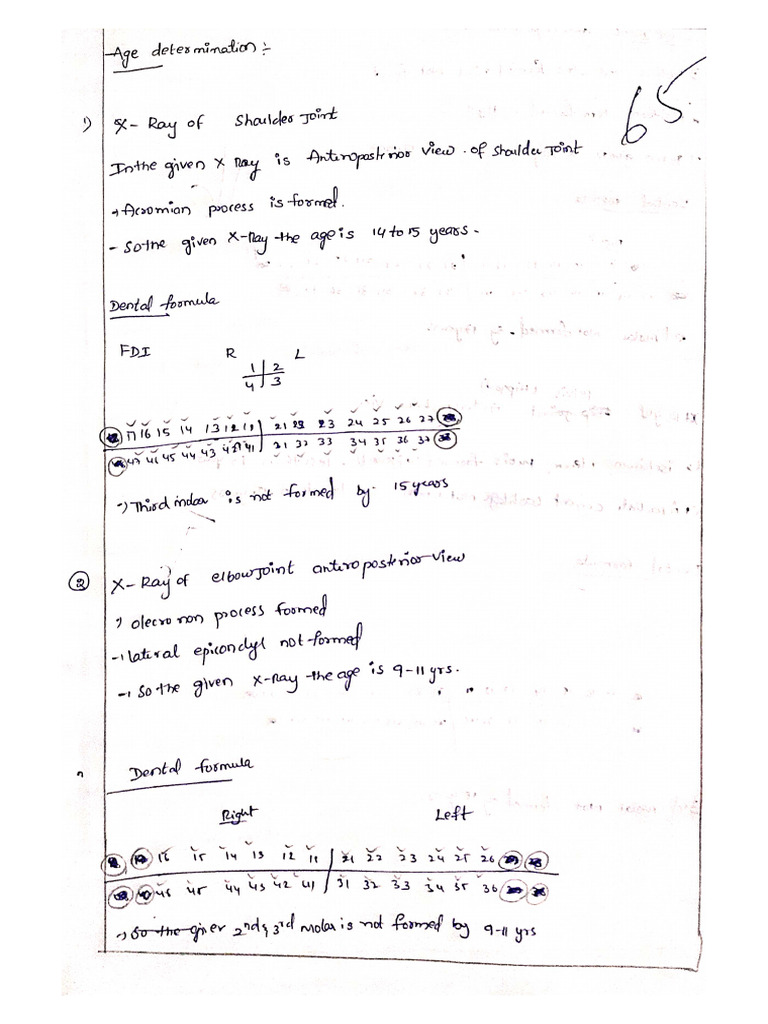 Age determination :-
65
1) X- Ray of Shoulder Joint
In the given X Ray is Anteroposterior view of shoulder Joint
→ Acromian process is formed.
- So the given X-Ray the age is 14 to 15 years.
Dental formula
FDI R 1 2 L
4 3
17 16 15 14 13 12 11 21 22 23 24 25 26 27
47 46 45 44 43 42 41 32 33 34 35 36 37 38
-) Third molar is not formed by 15 years
2 X- Ray of elbow Joint anteroposterior view
-) olecronon process foormed
-) lateral epicondyl not formed
-) So the given X-Ray the age is 9-11 yrs.
Dental formula
Right Left
16 15 14 13 12 11 21 22 23 24 25 26 28
45 44 43 42 41 31 32 33 34 35 36
-) So the given 2nd & 3rd Molar is not formed by 9-11 yrs